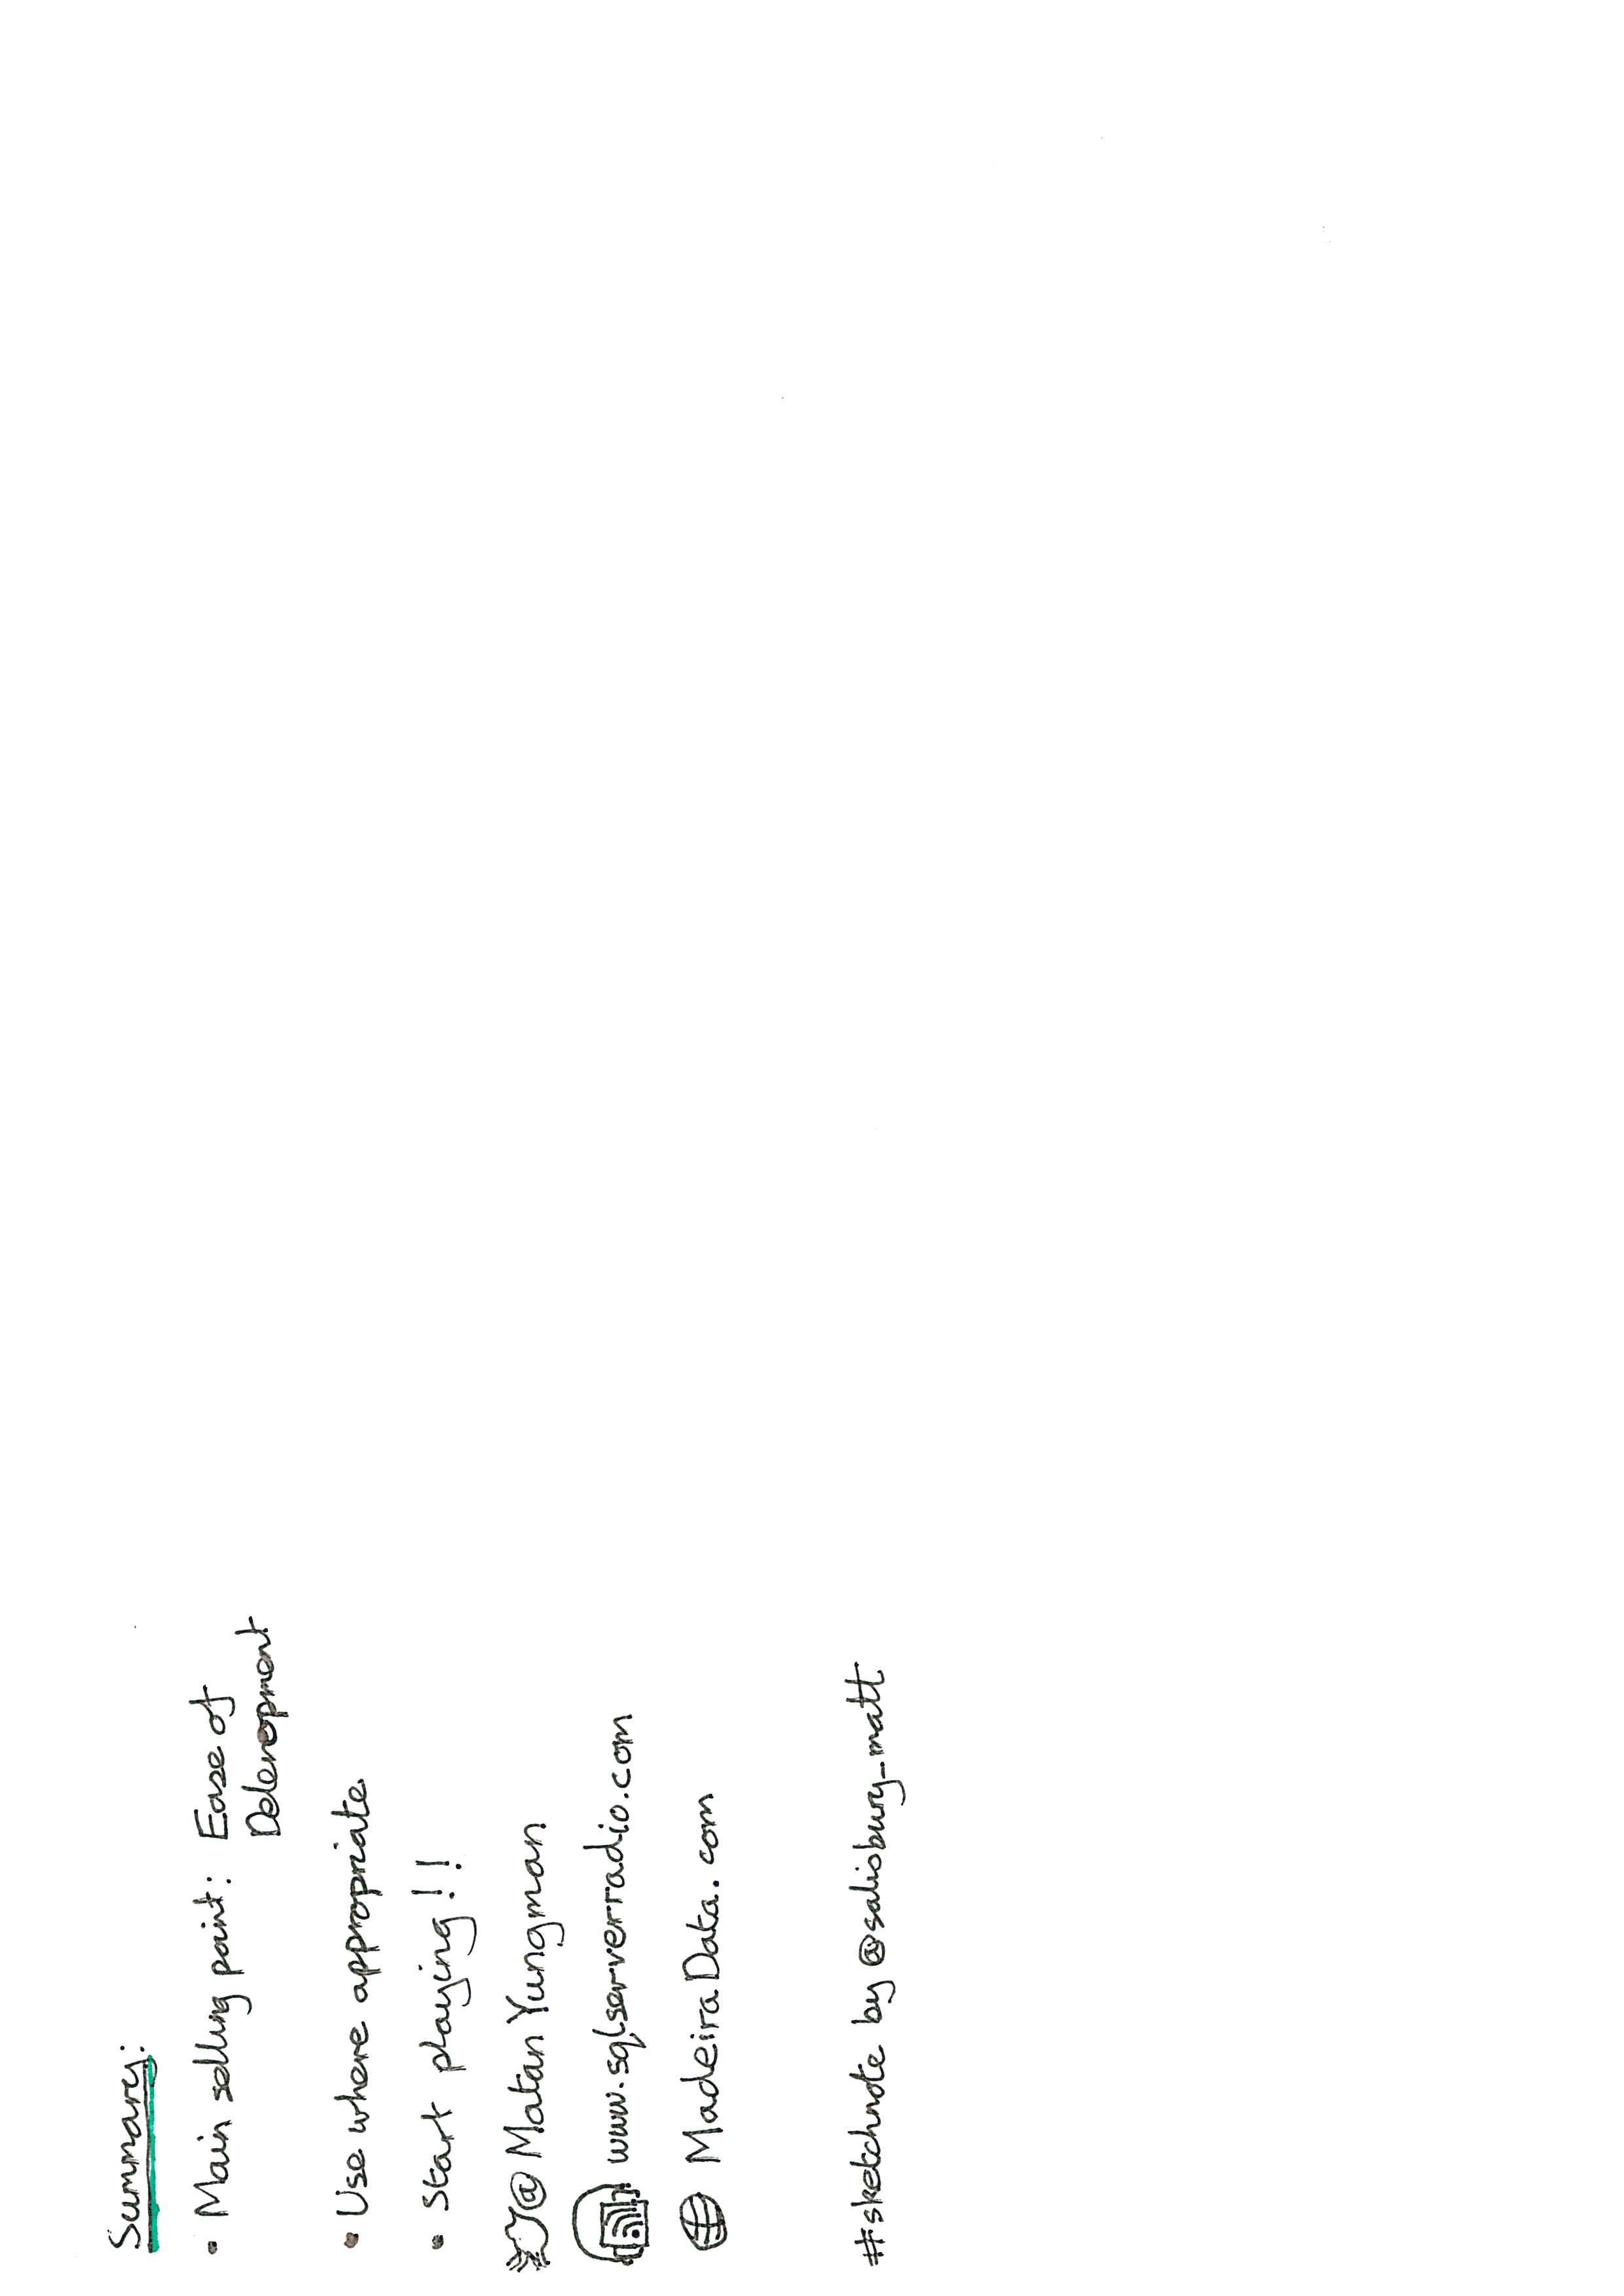 Summary:
• Main selling point: Ease of
Delevopment
• Use where appropriate.
• Start playing!!
@MatanYungman
www.sqlserverradio.com
MadeiraData.com
#sketchnote by @salisbury_matt